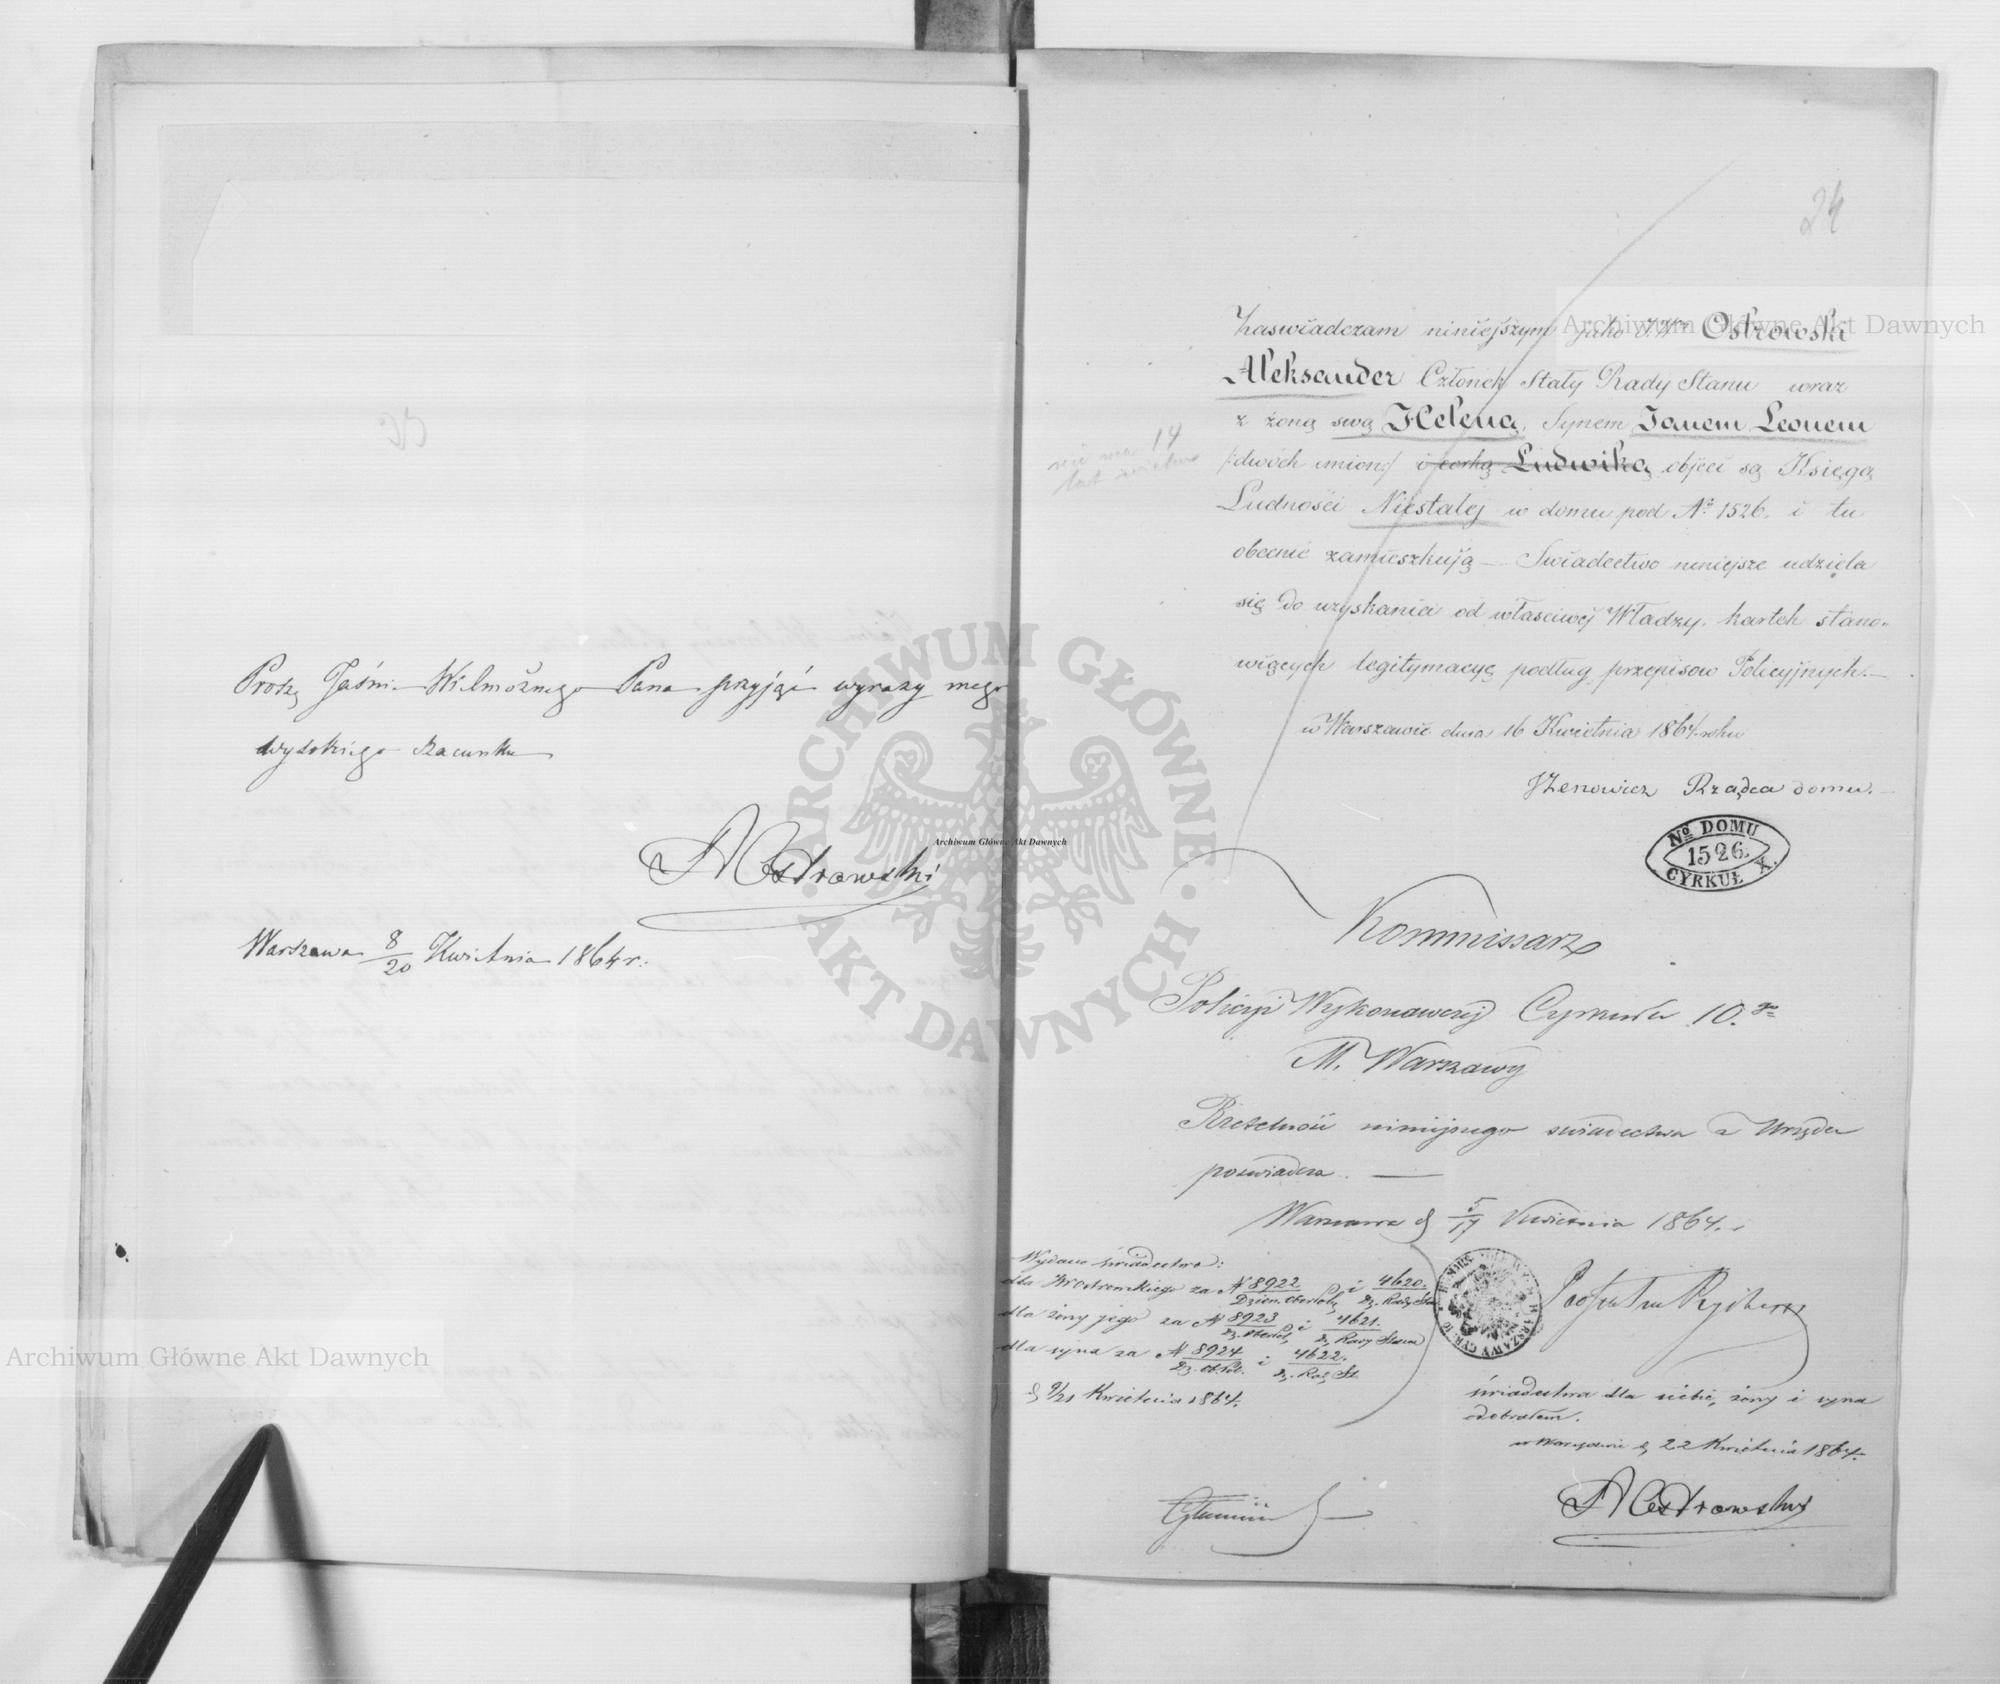 Proszę Jaśnie Wielmożnego Pana przyjąć wyrazy mego
wysokiego szacunku
AOstrowski
Warszawa 8/20 Kwietnia 1864 r.
24
Zaswiadczam niniejszym jako J.W. Ostrowski
Aleksander Członek Stały Rady Stanu wraz
z żoną swą Heleną, Synem Janem Leonem
/:dwóch imion:/ i corką Ludwiką objęci są Księgą
Ludności Niestałej w domu pod Nº 1526. i tu
obecnie zamieszkują — Swiadectwo niniejsze udziela
się do uzyskania od właściwej Władzy, kartek stano„
wiących legitymacyę podług przepisow Policyjnych.—
w Warszawie dnia 16 Kwietnia 1864 roku
nie ma 14
lat wieku
Zenowicz Rządca domu.—
Nº DOMU
1526.
CYRKUŁ X.
Kommissarz
Policyi Wykonawczej Cyrkułu 10.go
M. Warszawy
Rzetelność niniejszego swiadectwa z Urzędu
poswiadcza. —
Warszawa d 5/17 Kwietnia 1864. r.
Wydano świadectwa:
dla JW Ostrowskiego za N 8922 i 4620.
dla żony jego za N 8923 i 4621.
dla syna za N 8924 i 4622.
d 9/21 Kwietnia 1864.
świadectwa dla siebie, żony i syna
odebrałem.
w Warszawie d, 22 Kwietnia 1864.
AOstrowski
Archiwum Główne Akt Dawnych
Archiwum Główne Akt Dawnych
Archiwum Główne Akt Dawnych
ARCHIWUM GŁÓWNE
AKT DAWNYCH